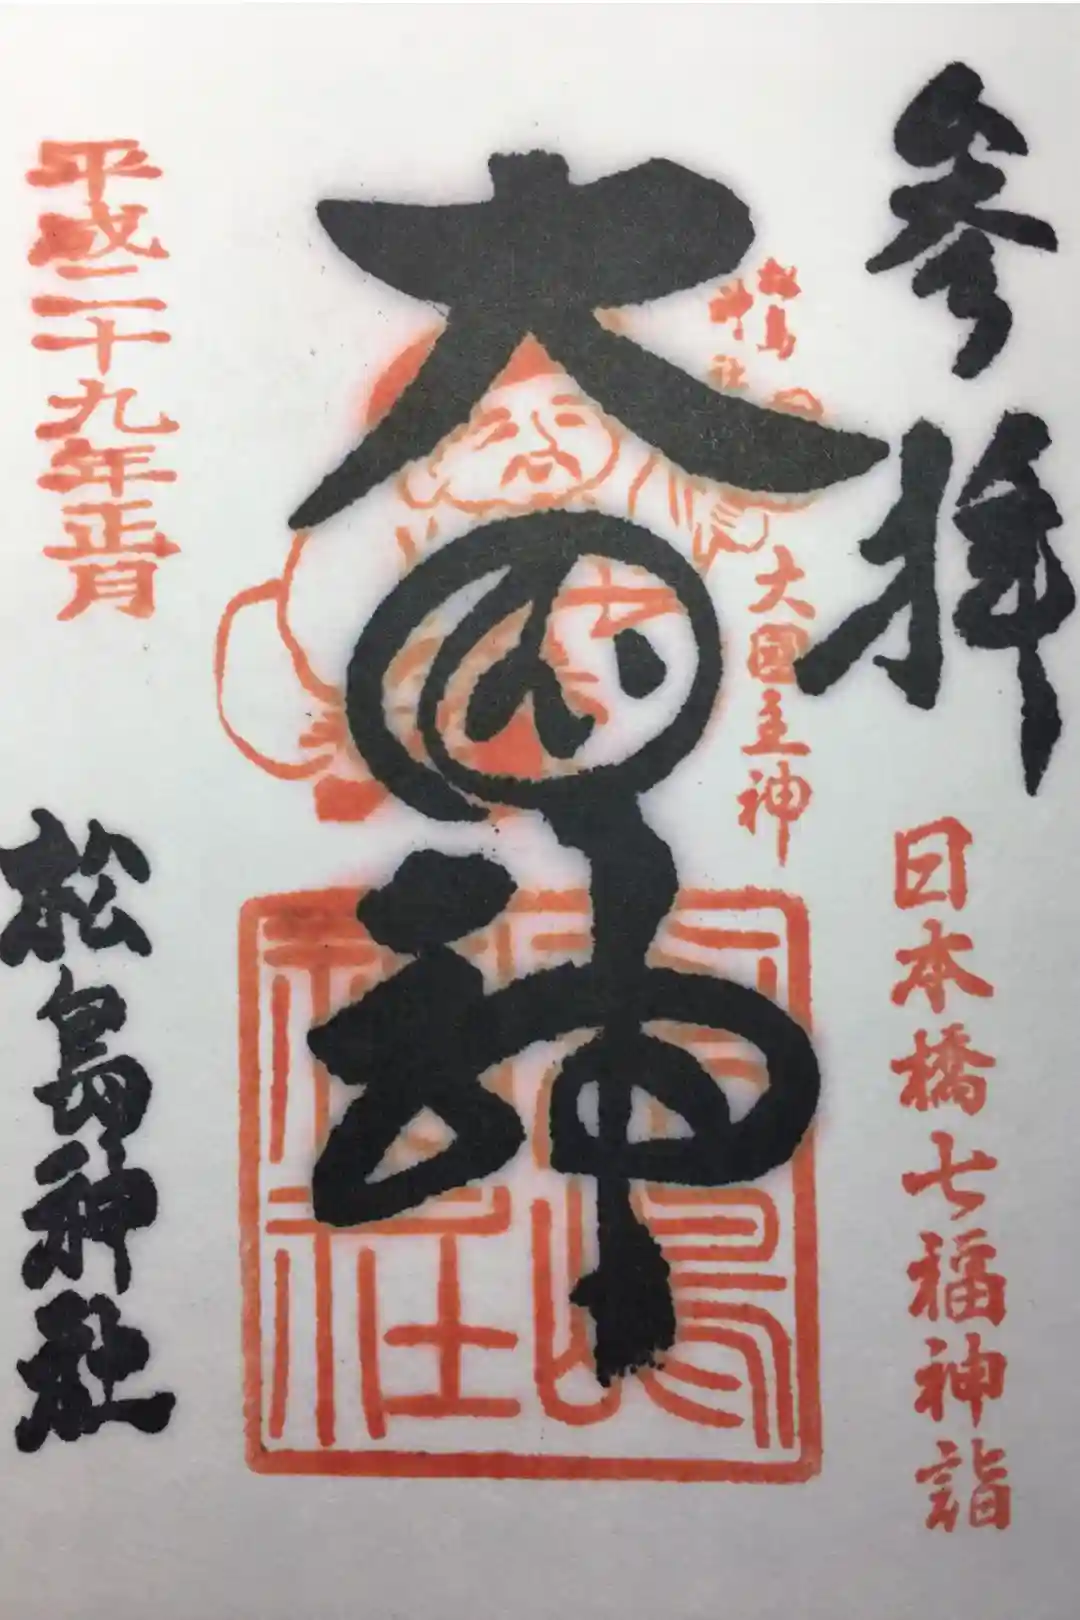 参拝
日本橋七福神詣
松島
神社
大國主神
大国神
松島神社
平成二十九年正月
松島神社